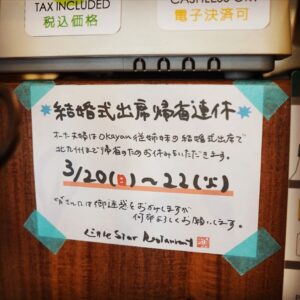 TAX INCLUDED
税込価格
CASHLESS ONLY
電子決済可
結婚式出席帰省連休
オーナー夫婦はOkayan従姉妹の結婚式出席で
北九州まで帰省のためお休みをいただきます。
3/20(日)〜22(火)
皆さんには御迷惑をおかけしますが
何卒よろしくお願いします。
Little Star Restaurant